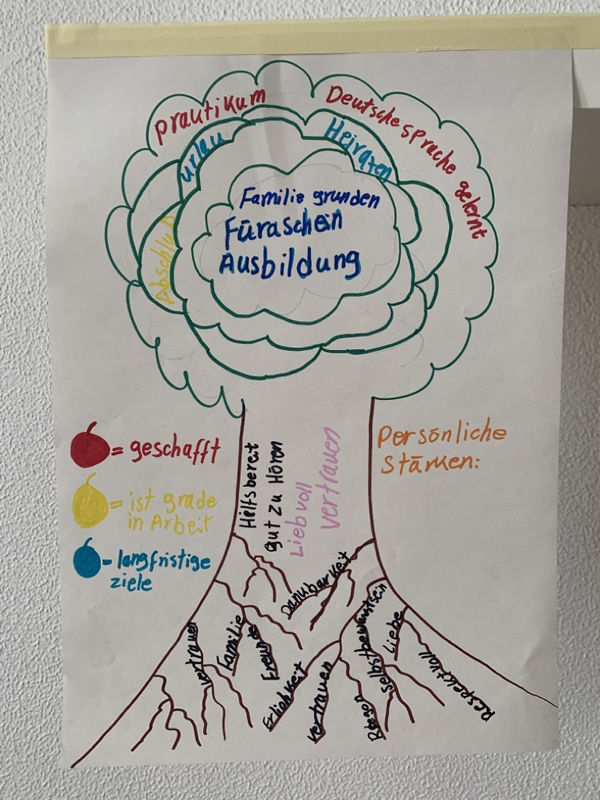 prautikum
Deutschesprache gelernt
urlau
Heiraten
Abschluß
Familie grunden
Füraschein
Ausbildung
= geschafft
= ist grade
in Arbeit
= langfristige
ziele
Persönliche
Stärken:
Hilfsbereit
gut zu Hören
Liebvoll
vertrauen
Dankbarkeit
vertrauen
Familie
Freunde
Erlichkeit
vertrauen
Selbsbewustsein
Liebe
Respektvoll